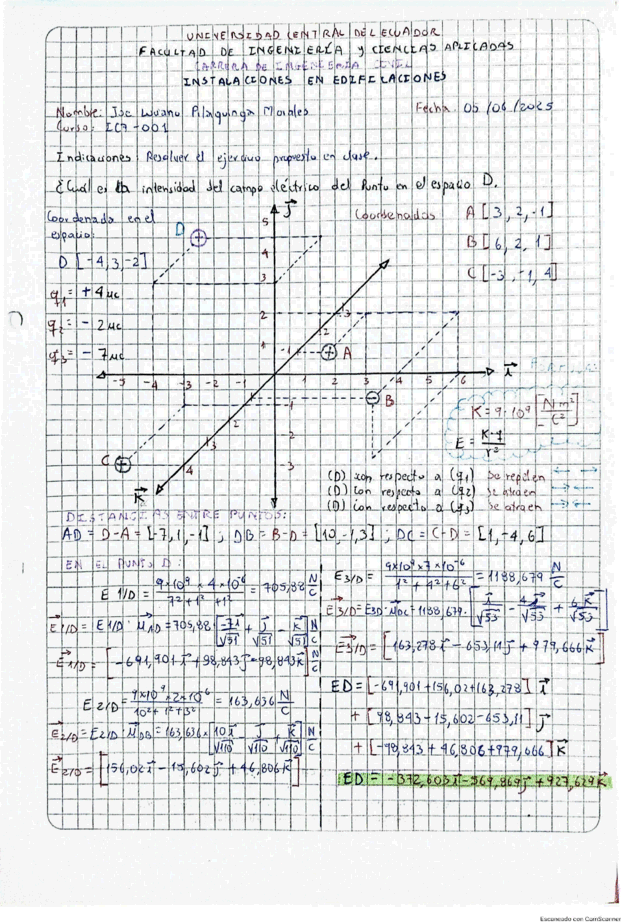 UNIVERSIDAD CENTRAL DEL ECUADOR
FACULTAD DE INGENIERÍA y CIENCIAS APLICADAS
CARRERA DE INGENIERÍA CIVIL
INSTALACIONES EN EDIFICACIONES
Nombre: Morales
Fecha: 05/06/2025
Curso: IC7-001
Indicaciones: Resolver el ejercicio propuesto en clase.
¿Cuál es la intensidad del campo eléctrico del Punto en el espacio D.
Coordenada en el espacio:
D [-4,3,-2]
q1 = +4μc
q2 = -2μc
q3 = -7μc
Coordenadas A [3, 2, -1]
B [6, 2, 1]
C [-3, -1, 4]
D
5
J
4
3
2
1
3
2
1
A
-5 -4 -3 -2 -1
1 2 3 4 5 6 i
B
-1
-2
-3
1
2
3
4
C
K
K = 9·10⁹ [N·m²/C²]
E = K·q/r²
(D) con respecto a (q1) se repelen
(D) con respecto a (q2) se atraen
(D) con respecto a (q3) se atraen
DISTANCIAS ENTRE PUNTOS:
AD = D-A = [-7,1,-1] ; DB = B-D = [10,-1,3] ; DC = C-D = [1,-4,6]
EN EL PUNTO D:
E 1/D = 9x10⁹ x 4x10⁻⁶ / 7²+1²+1² = 705,88 N/C
E1/D = E1/D · μAD = 705,88 [-7i/√51 + j/√51 - k/√51] N/C
E1/D = [-691,901i + 98,843j - 98,843k] N/C
E 2/D = 9x10⁹ x 2x10⁻⁶ / 10²+1²+3² = 163,636 N/C
E2/D = E2/D · μDB = 163,636 x [10i/√110 - j/√110 + k/√110] N/C
E2/D = [156,02i - 15,602j + 46,806k] N/C
E3/D = 9x10⁹ x 7x10⁻⁶ / 1²+4²+6² = 1188,679 N/C
E3/D = E3D · μDC = 1188,679 · [i/√53 - 4j/√53 + 6k/√53]
E3/D = [163,278i - 653,11j + 979,666k] N/C
ED = [-691,901 + 156,02 + 163,278] i
+ [98,843 - 15,602 - 653,11] j
+ [-98,843 + 46,806 + 979,666] k
ED = -372,603i - 569,869j + 927,629k
Escaneado con CamScanner